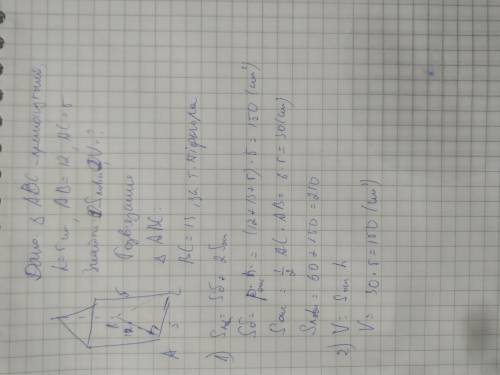 Дано: Δ ABC - прямокутний,
h = 5 см, AB = 12, AC = 5
Знайти: 1) Sповн, 2) V - ?
Розв'язання
Δ ABC:
BC = 13, за т. Піфагора
1) Sпов = Sб + 2Sосн
Sб = Pосн · h = (12+13+5) · 5 = 150 (см²)
Sосн = 1/2 AC · AB = 6 · 5 = 30 (см)
Sповн = 60 + 150 = 210
2) V = Sосн · h
V = 30 · 5 = 150 (см³)
A
B
C
12
5